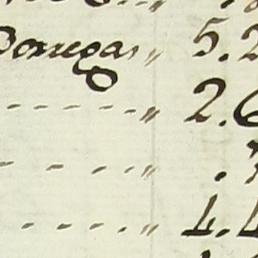 Borregas " 5.2
- - - - - - " 2.6
- - - - " .
- - - - - " 4.4